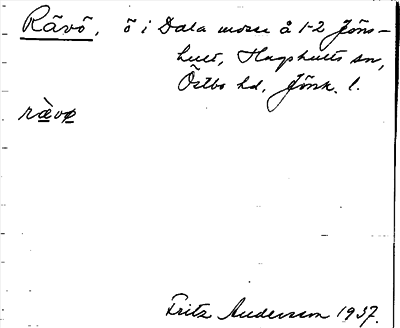 Rävö, ö i Dala mosse å 1-2 Jöns-
hult, Hagshults sn,
Östbo hd, Jönk. l.
rὰvø
Fritz Andersson 1937.